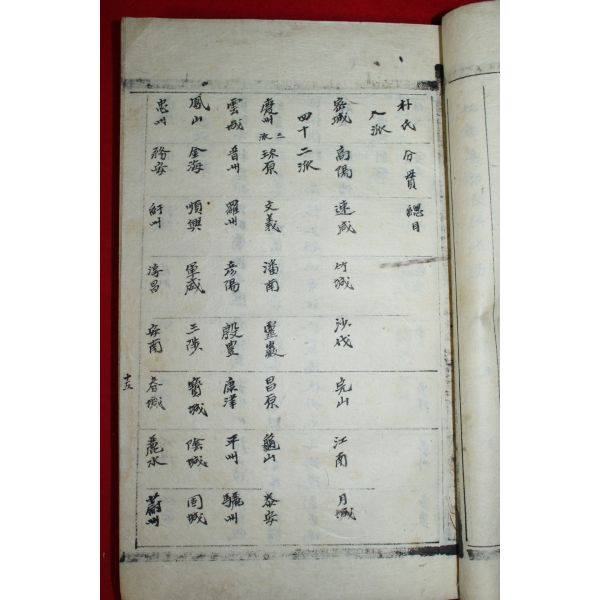 朴氏分貫總目
八派
密城 高陽 速咸 竹城 沙伐 完山 江南 月城
四十二派
慶州 三派 珠原 文義 潘南 靈巖 昌原 龜山 泰安
雲城 晋州 羅州 彦陽 殷豊 康津 平州 驪州
鳳山 金海 順興 軍威 三陟 寶城 陰城 固城
忠州 務安 淳昌 安南 春城 麗水 蔚州
十五